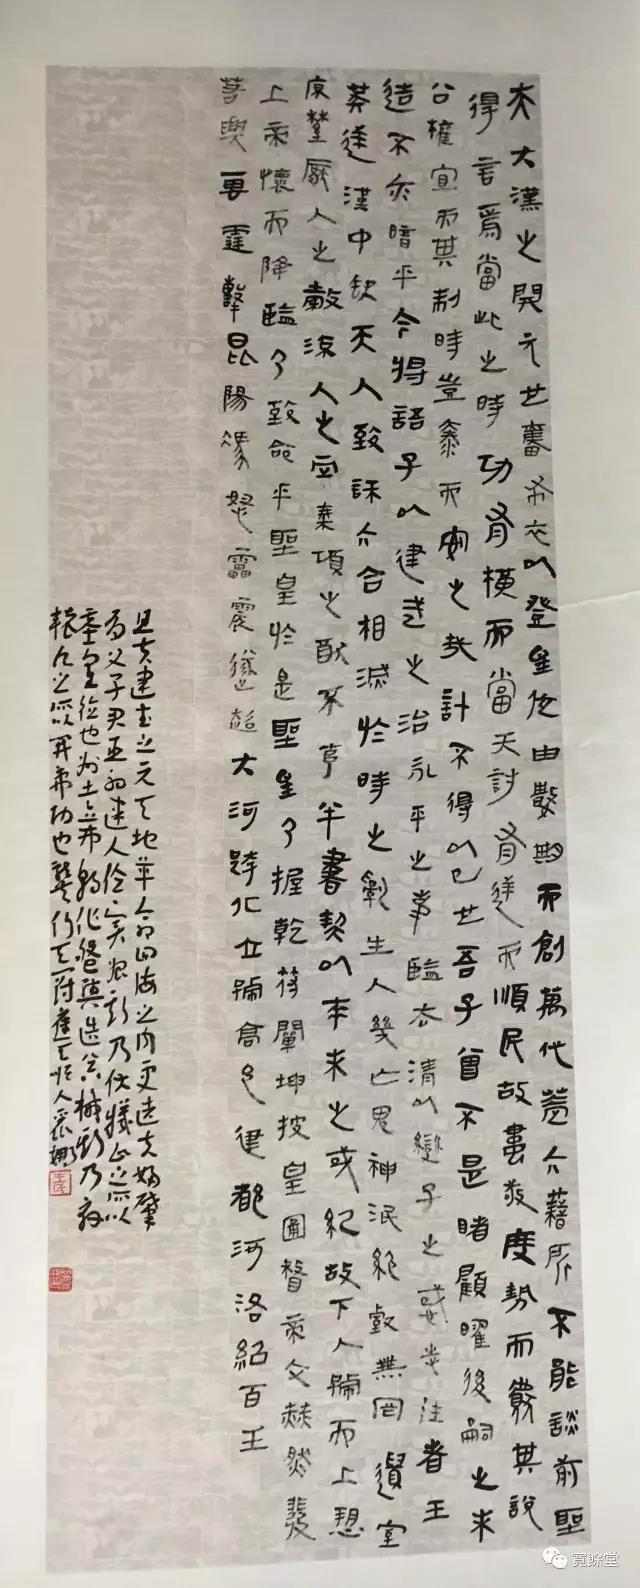 夫大漢之開元也奮布衣以登皇位由數期而創萬代蓋六藉所不能談前聖
得言焉當此之時功有橫而當天討有逆而順民故婁敬度勢而獻其說
公權宜而其制時豈泰而安之哉計不得以已也吾子曾不是睹顧曜後嗣之末
造不亦暗乎今將語子以建武之治永平之事監太清以變子之惑志往者王
莽逆漢中缺天人致誅六合相滅於時之亂生人幾亡鬼神泯絕壑無罔遺室
原野厭人之穀流人之血秦項之猷不克半書契以來未之或紀故下人號而上愬
上帝懷而降監乃致命乎聖皇於是聖皇乃握乾符闡坤披皇圖稽帝文赫然發
若興霆擊昆陽馮怒雷震遂超大河跨北立號高邑建都河洛紹百王
且夫建武之元天地革命四海之內更造夫婦肇
有父子君臣初建人倫實始斯乃伏犧氏之所以
基皇德也分土立市朝作舟輿造器械斯乃軒
轅氏之所以開帝功也龔行天罰應天順人
寬餘堂